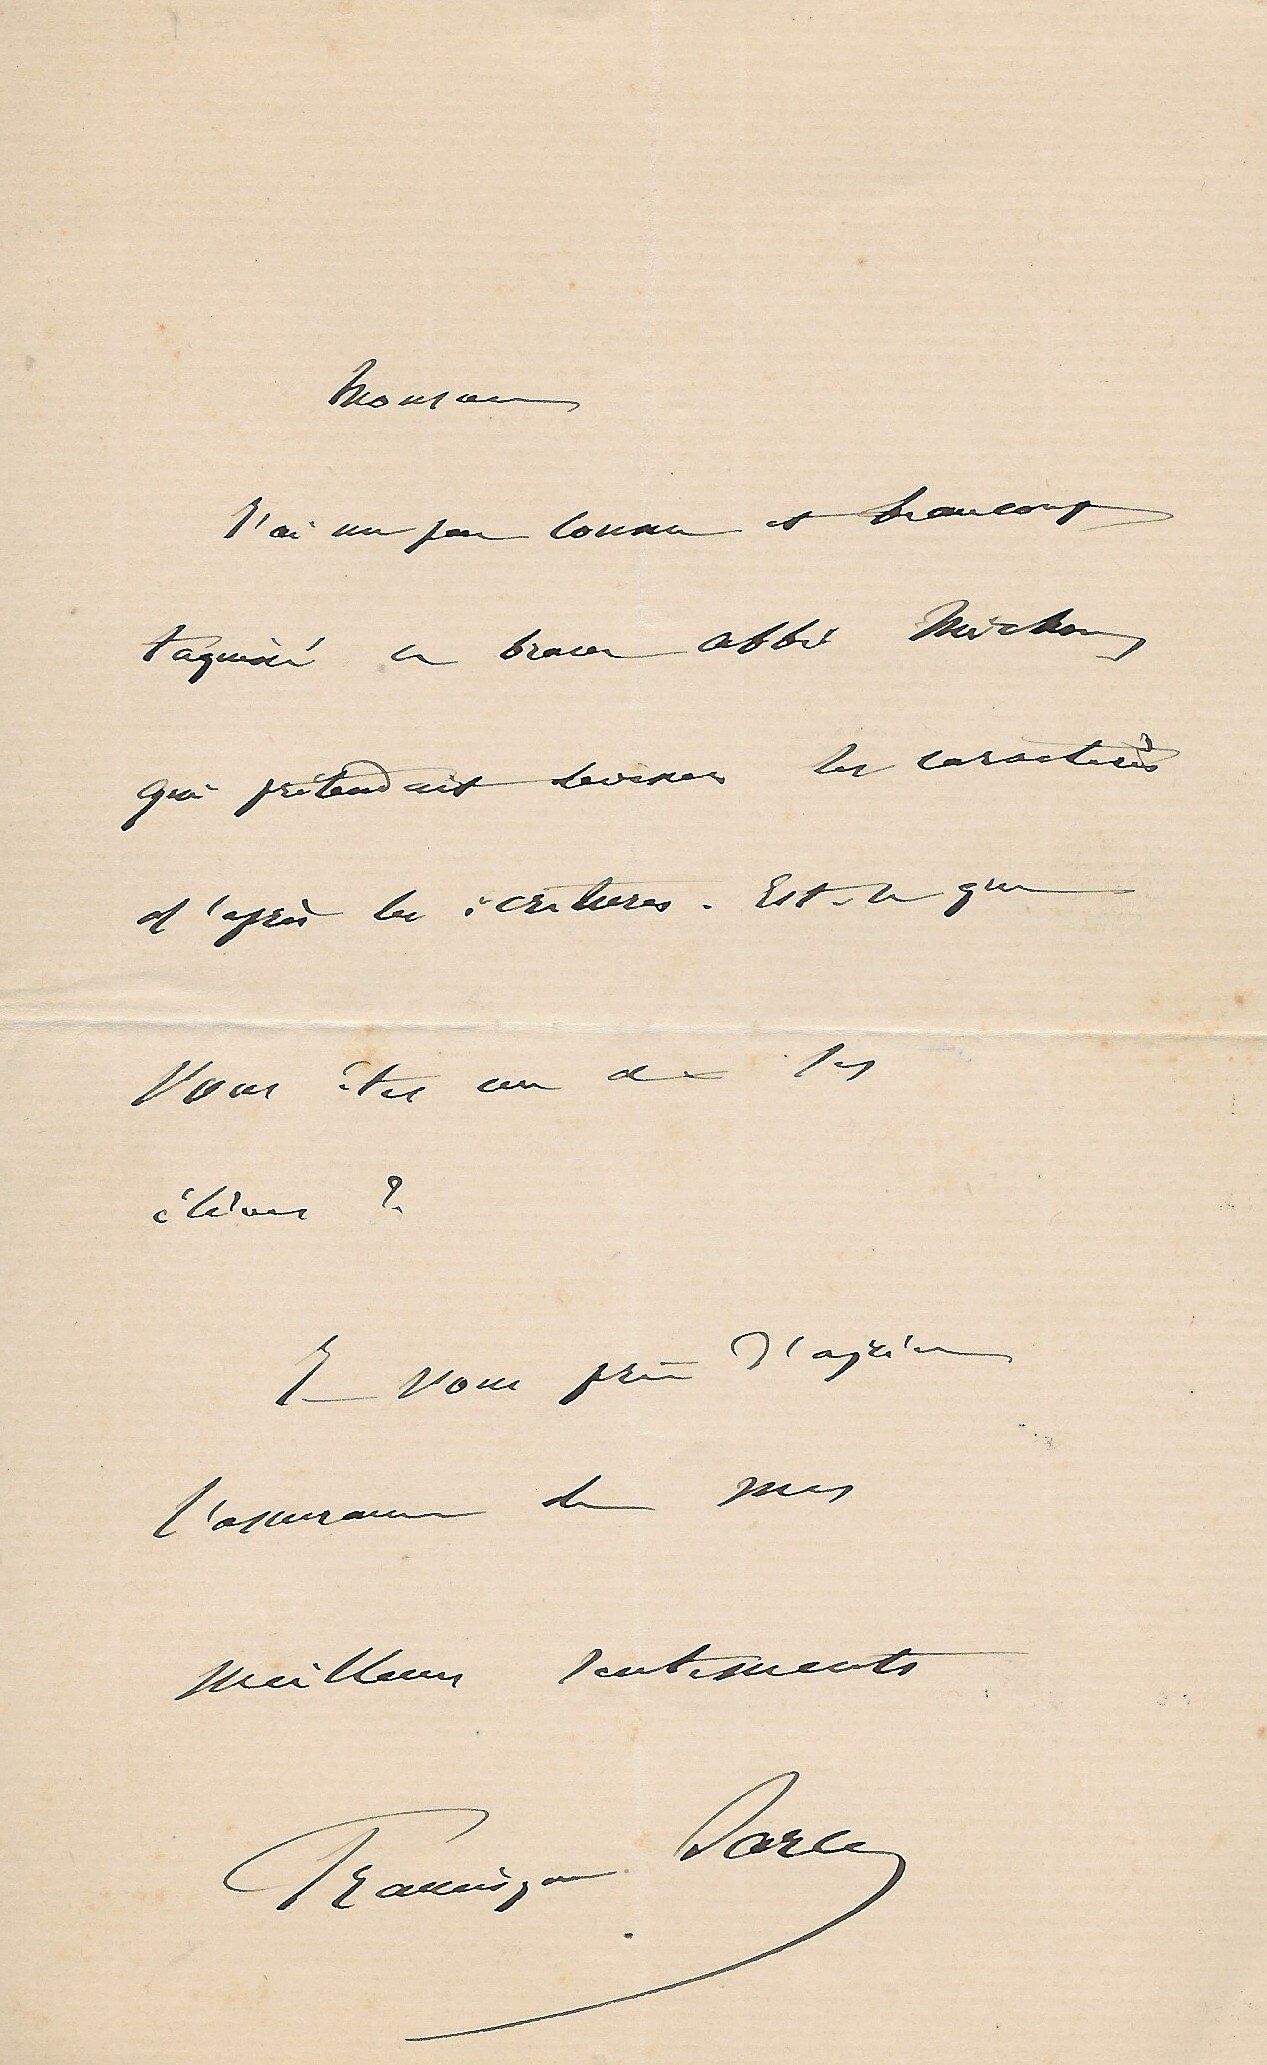 Monsieur
J'ai un peu connu et beaucoup
taquiné ce brave abbé Michon
qui prétendait deviner les caractères
d'après les écritures. Est-ce que
vous êtes un de ses
élèves ?
Je vous prie d'agréer
l'assurance de mes
meilleurs sentiments
Francisque Sarcey